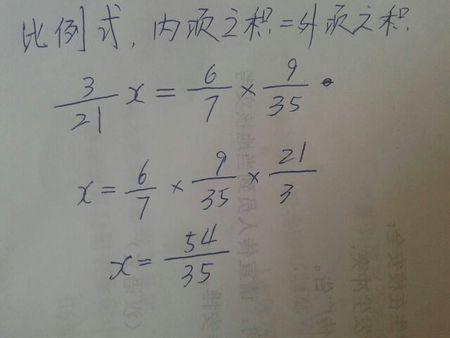 比例式,内项之积=外项之积
3/21 x = 6/7 × 9/35
x = 6/7 × 9/35 × 21/3
x = 54/35